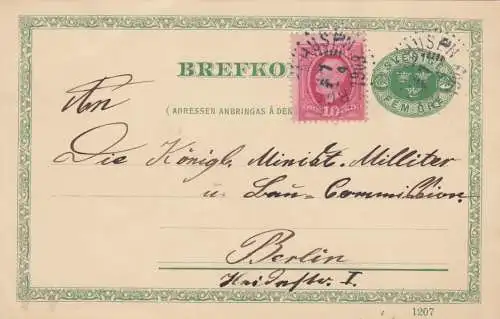 BREFKO
SVERIGE
FEM ÖRE
10
(ADRESSEN ANBRINGAS Å DEN
An
Die Königl. Minist. Milliter
u. Bau-Commission
Berlin
I.
1207